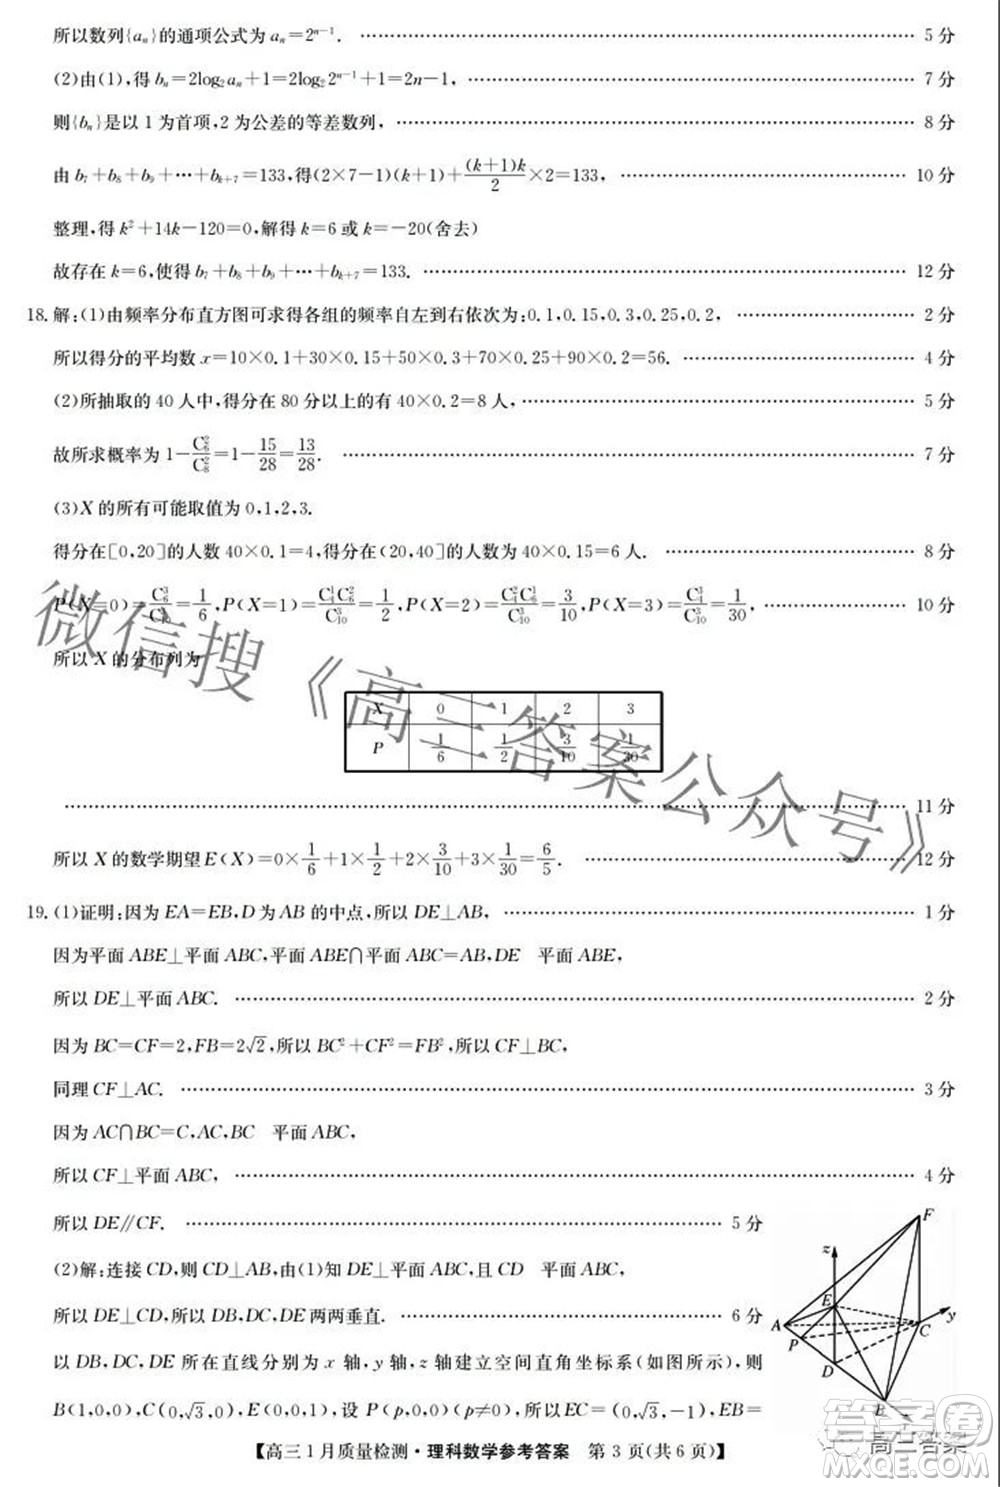 所以数列{aₙ}的通项公式为 aₙ=2ⁿ⁻¹. …… 5 分
(2)由(1),得 bₙ=2log₂aₙ+1=2log₂2ⁿ⁻¹+1=2n−1, …… 7 分
则{bₙ}是以 1 为首项,2 为公差的等差数列, …… 8 分
由 b₇+b₈+b₉+⋯+bₖ₊₇=133,得(2×7−1)(k+1)+(k+1)k/2×2=133, …… 10 分
整理,得 k²+14k−120=0,解得 k=6 或 k=−20(舍去)
故存在 k=6,使得 b₇+b₈+b₉+⋯+bₖ₊₇=133. …… 12 分
18. 解:(1)由频率分布直方图可求得各组的频率自左到右依次为:0.1,0.15,0.3,0.25,0.2, …… 2 分
所以得分的平均数 x=10×0.1+30×0.15+50×0.3+70×0.25+90×0.2=56. …… 4 分
(2)所抽取的 40 人中,得分在 80 分以上的有 40×0.2=8 人, …… 5 分
故所求概率为 1−C₆²/C₈²=1−15/28=13/28. …… 7 分
(3)X 的所有可能取值为 0,1,2,3.
得分在[0,20]的人数 40×0.1=4,得分在(20,40]的人数为 40×0.15=6 人. …… 8 分
P(X=0)=C₆³/C₁₀³=1/6,P(X=1)=C₄¹C₆²/C₁₀³=1/2,P(X=2)=C₄²C₆¹/C₁₀³=3/10,P(X=3)=C₄³/C₁₀³=1/30, …… 10 分
所以 X 的分布列为
X 0 1 2 3
P 1/6 1/2 3/10 1/30
…… 11 分
所以 X 的数学期望 E(X)=0×1/6+1×1/2+2×3/10+3×1/30=6/5. …… 12 分
19. (1)证明:因为 EA=EB,D 为 AB 的中点,所以 DE⊥AB, …… 1 分
因为平面 ABE⊥平面 ABC,平面 ABE∩平面 ABC=AB,DE 平面 ABE,
所以 DE⊥平面 ABC. …… 2 分
因为 BC=CF=2,FB=2√2,所以 BC²+CF²=FB²,所以 CF⊥BC,
同理 CF⊥AC. …… 3 分
因为 AC∩BC=C,AC,BC 平面 ABC,
所以 CF⊥平面 ABC, …… 4 分
所以 DE∥CF. …… 5 分
(2)解:连接 CD,则 CD⊥AB,由(1)知 DE⊥平面 ABC,且 CD 平面 ABC,
所以 DE⊥CD,所以 DB,DC,DE 两两垂直. …… 6 分
以 DB,DC,DE 所在直线分别为 x 轴,y 轴,z 轴建立空间直角坐标系(如图所示),则
B(1,0,0),C(0,√3,0),E(0,0,1),设 P(p,0,0)(p≠0),所以EC=(0,√3,−1),FB=
F
z
E
y
A
C
P
D
【高三 1 月质量检测·理科数学参考答案 第 3 页(共 6 页)】
微信搜《高三答案公众号》
高三答案